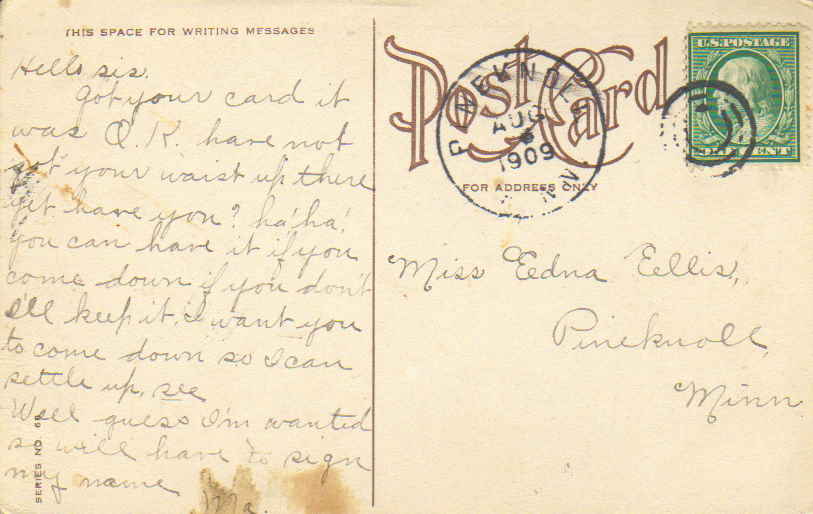 THIS SPACE FOR WRITING MESSAGES
Hello sis.
Got your card it
was O.K. have not
got your waist up there
yet have you? ha! ha!
you can have it if you
come down if you don't
I'll keep it. I want you
to come down so I can
settle up. see
Well guess I'm wanted
so will have to sign
my name
Ma.
SERIES NO. 69
Post Card
FOR ADDRESS ONLY
PINEKNOLL
AUG
1909
MINN.
U.S. POSTAGE
ONE CENT
Miss Eedna Eellis,
Pineknoll,
Minn